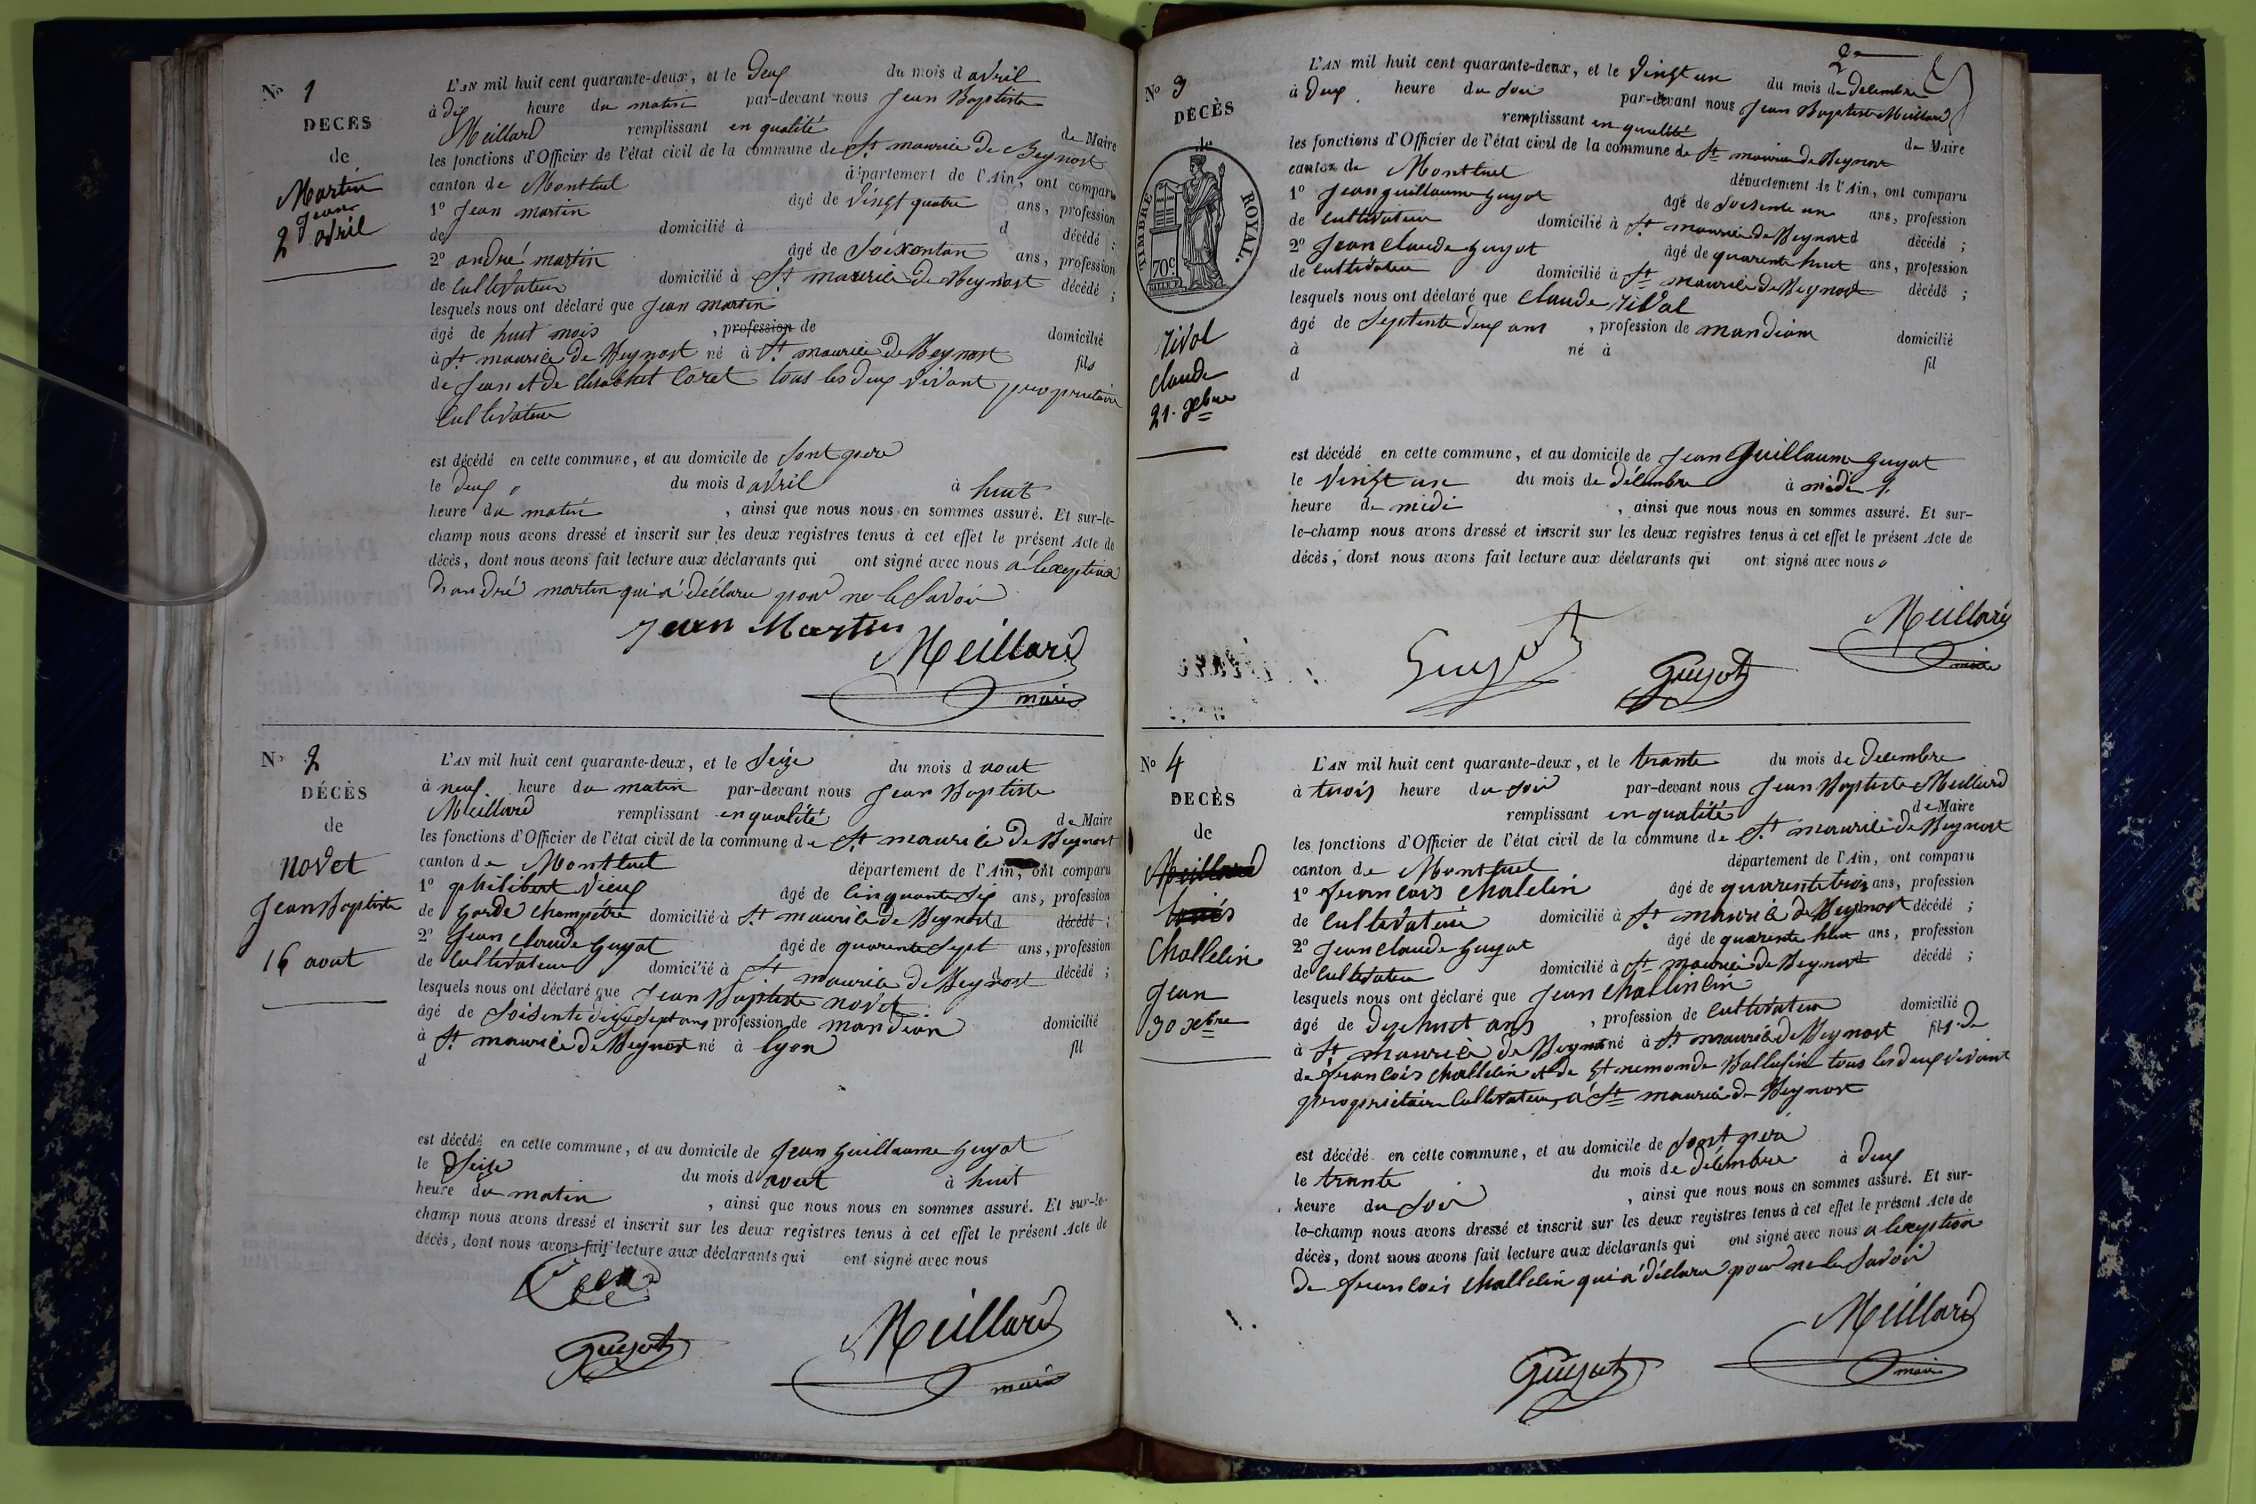 Nº 1
DÉCÈS
de
Martin
Jean
2 avril
L'AN mil huit cent quarante-deux, et le deux du mois d avril
à dix heure du matin par-devant nous Jean Baptiste
Meillard remplissant en qualité de Maire
les fonctions d'Officier de l'état civil de la commune de St maurice de Beynost
canton de Montluel département de l'Ain, ont comparu
1º Jean martin âgé de vingt quatre ans, profession
de domicilié à d décédé ;
2º andré martin âgé de soixantan ans, profession
de Cultivateur domicilié à St maurice de Beynost décédé ;
lesquels nous ont déclaré que Jean martin
âgé de huit mois , profession de domicilié
à St maurice de Beynost né à St maurice de Beynost fils
de Jean et de Elisabhet Coret tous les deux vivant propriétaire
Cultivateur
est décédé en cette commune, et au domicile de sont pere
le deux du mois d avril à huit
heure du matin , ainsi que nous nous en sommes assuré. Et sur-le-
champ nous avons dressé et inscrit sur les deux registres tenus à cet effet le présent Acte de
décès, dont nous avons fait lecture aux déclarants qui ont signé avec nous a lexeption
d'andré martin qui a déclaré pour ne le savoir
Jean Martin
Meillard
maire
Nº 2
DÉCÈS
de
novet
Jean Baptiste
16 aout
L'AN mil huit cent quarante-deux, et le seize du mois d aout
à neuf heure du matin par-devant nous Jean Baptiste
Meillard remplissant en qualité de Maire
les fonctions d'Officier de l'état civil de la commune de St maurice de Beynost
canton de Montluel département de l'Ain, ont comparu
1º philibert vieux âgé de Cinquante six ans, profession
de garde Champétre domicilié à St maurice de Beynost d décédé ;
2º Jean Claude Guyot âgé de quarente sept ans, profession
de Cultivateur domicilié à St maurice de Beynost d décédé ;
lesquels nous ont déclaré que Jean Baptiste novet
âgé de soisente dix sept ans profession de mandian domicilié
à St maurice de Beynost né à lyon fil
d
est décédé en cette commune, et au domicile de Jean Guillaume Guyot
le seize du mois d aout à huit
heure du matin , ainsi que nous nous en sommes assuré. Et sur-le-
champ nous avons dressé et inscrit sur les deux registres tenus à cet effet le présent Acte de
décès, dont nous avons fait lecture aux déclarants qui ont signé avec nous
Guyot
Meillard
maire
2
Nº 3
DÉCÈS
de
TIMBRE ROYAL.
70 c.
rival
Claude
21. Xbre
L'AN mil huit cent quarante-deux, et le vingt un du mois de décembre
à deux heure du soir par-devant nous Jean Baptiste Meillard
remplissant en qualité de Maire
les fonctions d'Officier de l'état civil de la commune de St maurice de Beynost
canton de Montluel département de l'Ain, ont comparu
1º Jean guillaume guyot âgé de soisente un ans, profession
de Cultivateur domicilié à St maurice de Beynost d décédé ;
2º Jean Claude guyot âgé de quarente huit ans, profession
de Cultivateur domicilié à St maurice de Beynost décédé ;
lesquels nous ont déclaré que Claude rival
âgé de septente deux ans , profession de mandiam domicilié
à né à fil
d
est décédé en cette commune, et au domicile de Jean Guillaume Guyot
le vingt un du mois de décembre à midi
heure de midi , ainsi que nous nous en sommes assuré. Et sur-
le-champ nous avons dressé et inscrit sur les deux registres tenus à cet effet le présent Acte de
décès, dont nous avons fait lecture aux déclarants qui ont signé avec nous
Guyot
Guyot
Meillard
maire
Nº 4
DÉCÈS
de
Meillard
Challelin
Jean
30 Xbre
L'AN mil huit cent quarante-deux, et le trante du mois de décembre
à trois heure du soir par-devant nous Jean Baptiste Meillard
remplissant en qualité de Maire
les fonctions d'Officier de l'état civil de la commune de St maurice de Beynost
canton de Montluel département de l'Ain, ont comparu
1º francois Chalelin âgé de quarente trois ans, profession
de Cultivateur domicilié à St maurice de Beynost décédé ;
2º Jean Claude Guyot âgé de quarente huit ans, profession
de Cultivateur domicilié à St maurice de Beynost décédé ;
lesquels nous ont déclaré que Jean Challinlin
âgé de dizehuit ans , profession de Cultivateur domicilié
à St maurice de Beynost né à St maurice de Beynost fils de
de francois Challelin et de tous les deux vivant
propriétaire Cultivateur, à St maurice de Beynost
est décédé en cette commune, et au domicile de sont pere
le trante du mois de décembre à deux
heure du soir , ainsi que nous nous en sommes assuré. Et sur-
le-champ nous avons dressé et inscrit sur les deux registres tenus à cet effet le présent Acte de
décès, dont nous avons fait lecture aux déclarants qui ont signé avec nous a lexeption
de francois Challelin qui a déclaré pour ne le savoir
Guyot
Meillard
maire